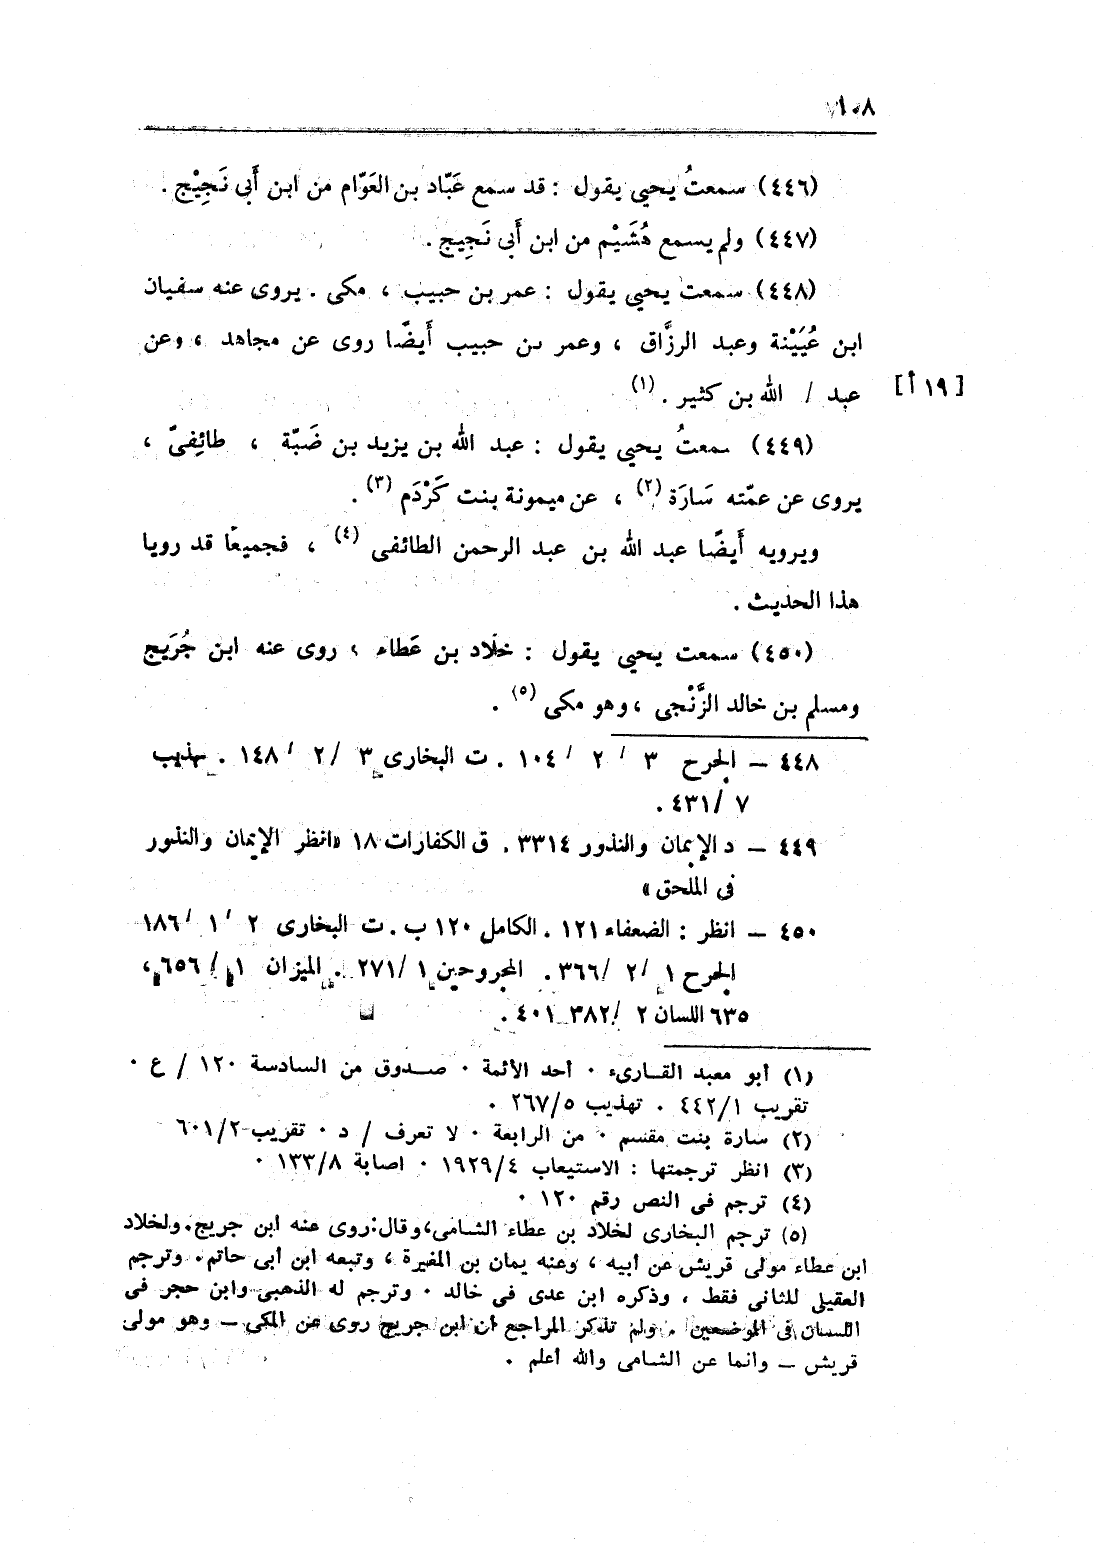 ١٠٨
(٤٤٦) سمعتُ يحيي يقول : قد سمع عَبّاد بن العَوّام من ابن أَبي نَجِيْح .
(٤٤٧) ولم يسمع هُشَيْم من ابن أَبي نَجِيح .
(٤٤٨) سمعت يحيي يقول : عمر بن حبيب ، مكى . يروى عنه سفيان
ابن عُيَيْنة وعبد الرزَّاق ، وعمر بن حبيب أَيضًا روى عن مجاهد ، وعن
عبد / الله بن كثير . (١)
[١٩ أ]
(٤٤٩) سمعتُ يحيي يقول : عبد الله بن يزيد بن ضَبّة ، طائِفىّ ،
يروى عن عمّته سَارَة (٢) ، عن ميمونة بنت كَرْدَم (٣) .
ويرويه أَيضًا عبد الله بن عبد الرحمن الطائفى (٤) ، فجميعًا قد رويا
هذا الحديث .
(٤٥٠) سمعت يحيي يقول : خلّاد بن عَطاء ، روى عنه ابن جُرَيج
ومسلم بن خالد الزَّنْجى ، وهو مكى (٥) .
٤٤٨ – الجرح ٣ / ٢ / ١٠٤ . ت البخارى ٣ / ٢ / ١٤٨ . تهذيب
٧ / ٤٣١ .
٤٤٩ – د الإيمان والنذور ٣٣١٤ . ق الكفارات ١٨ «انظر الإيمان والنذور
فى الملحق »
٤٥٠ – انظر : الضعفاء ١٢١ . الكامل ١٢٠ ب . ت البخارى ٢ / ١ / ١٨٦
الجرح ١ / ٢ / ٣٦٦ . المجروحين ١ / ٢٧١ . الميزان ١ / ٦٥٦ ،
٦٣٥ اللسان ٢ / ٣٨٢ ـ ٤٠١ .
(١) أبو معبد القارىء . أحد الأئمة . صدوق من السادسة ١٢٠ / ع .
تقريب ٤٤٢/١ . تهذيب ٢٦٧/٥ .
(٢) سارة بنت مقسم . من الرابعة . لا تعرف / د . تقريب ٦٠١/٢
(٣) انظر ترجمتها : الاستيعاب ١٩٢٩/٤ . اصابة ١٣٣/٨ .
(٤) ترجم فى النص رقم ١٢٠ .
(٥) ترجم البخارى لخلاد بن عطاء الشامى،وقال:روى عنه ابن جريج. ولخلاد
ابن عطاء مولى قريش عن أبيه ، وعنه يمان بن المغيرة ، وتبعه ابن أبى حاتم. وترجم
العقيلى للثانى فقط ، وذكره ابن عدى فى خالد . وترجم له الذهبى وابن حجر فى
اللسان فى الموضعين . ولم تذكر المراجع أن ابن جريج روى عن المكى – وهو مولى
قريش – وانما عن الشامى والله أعلم .